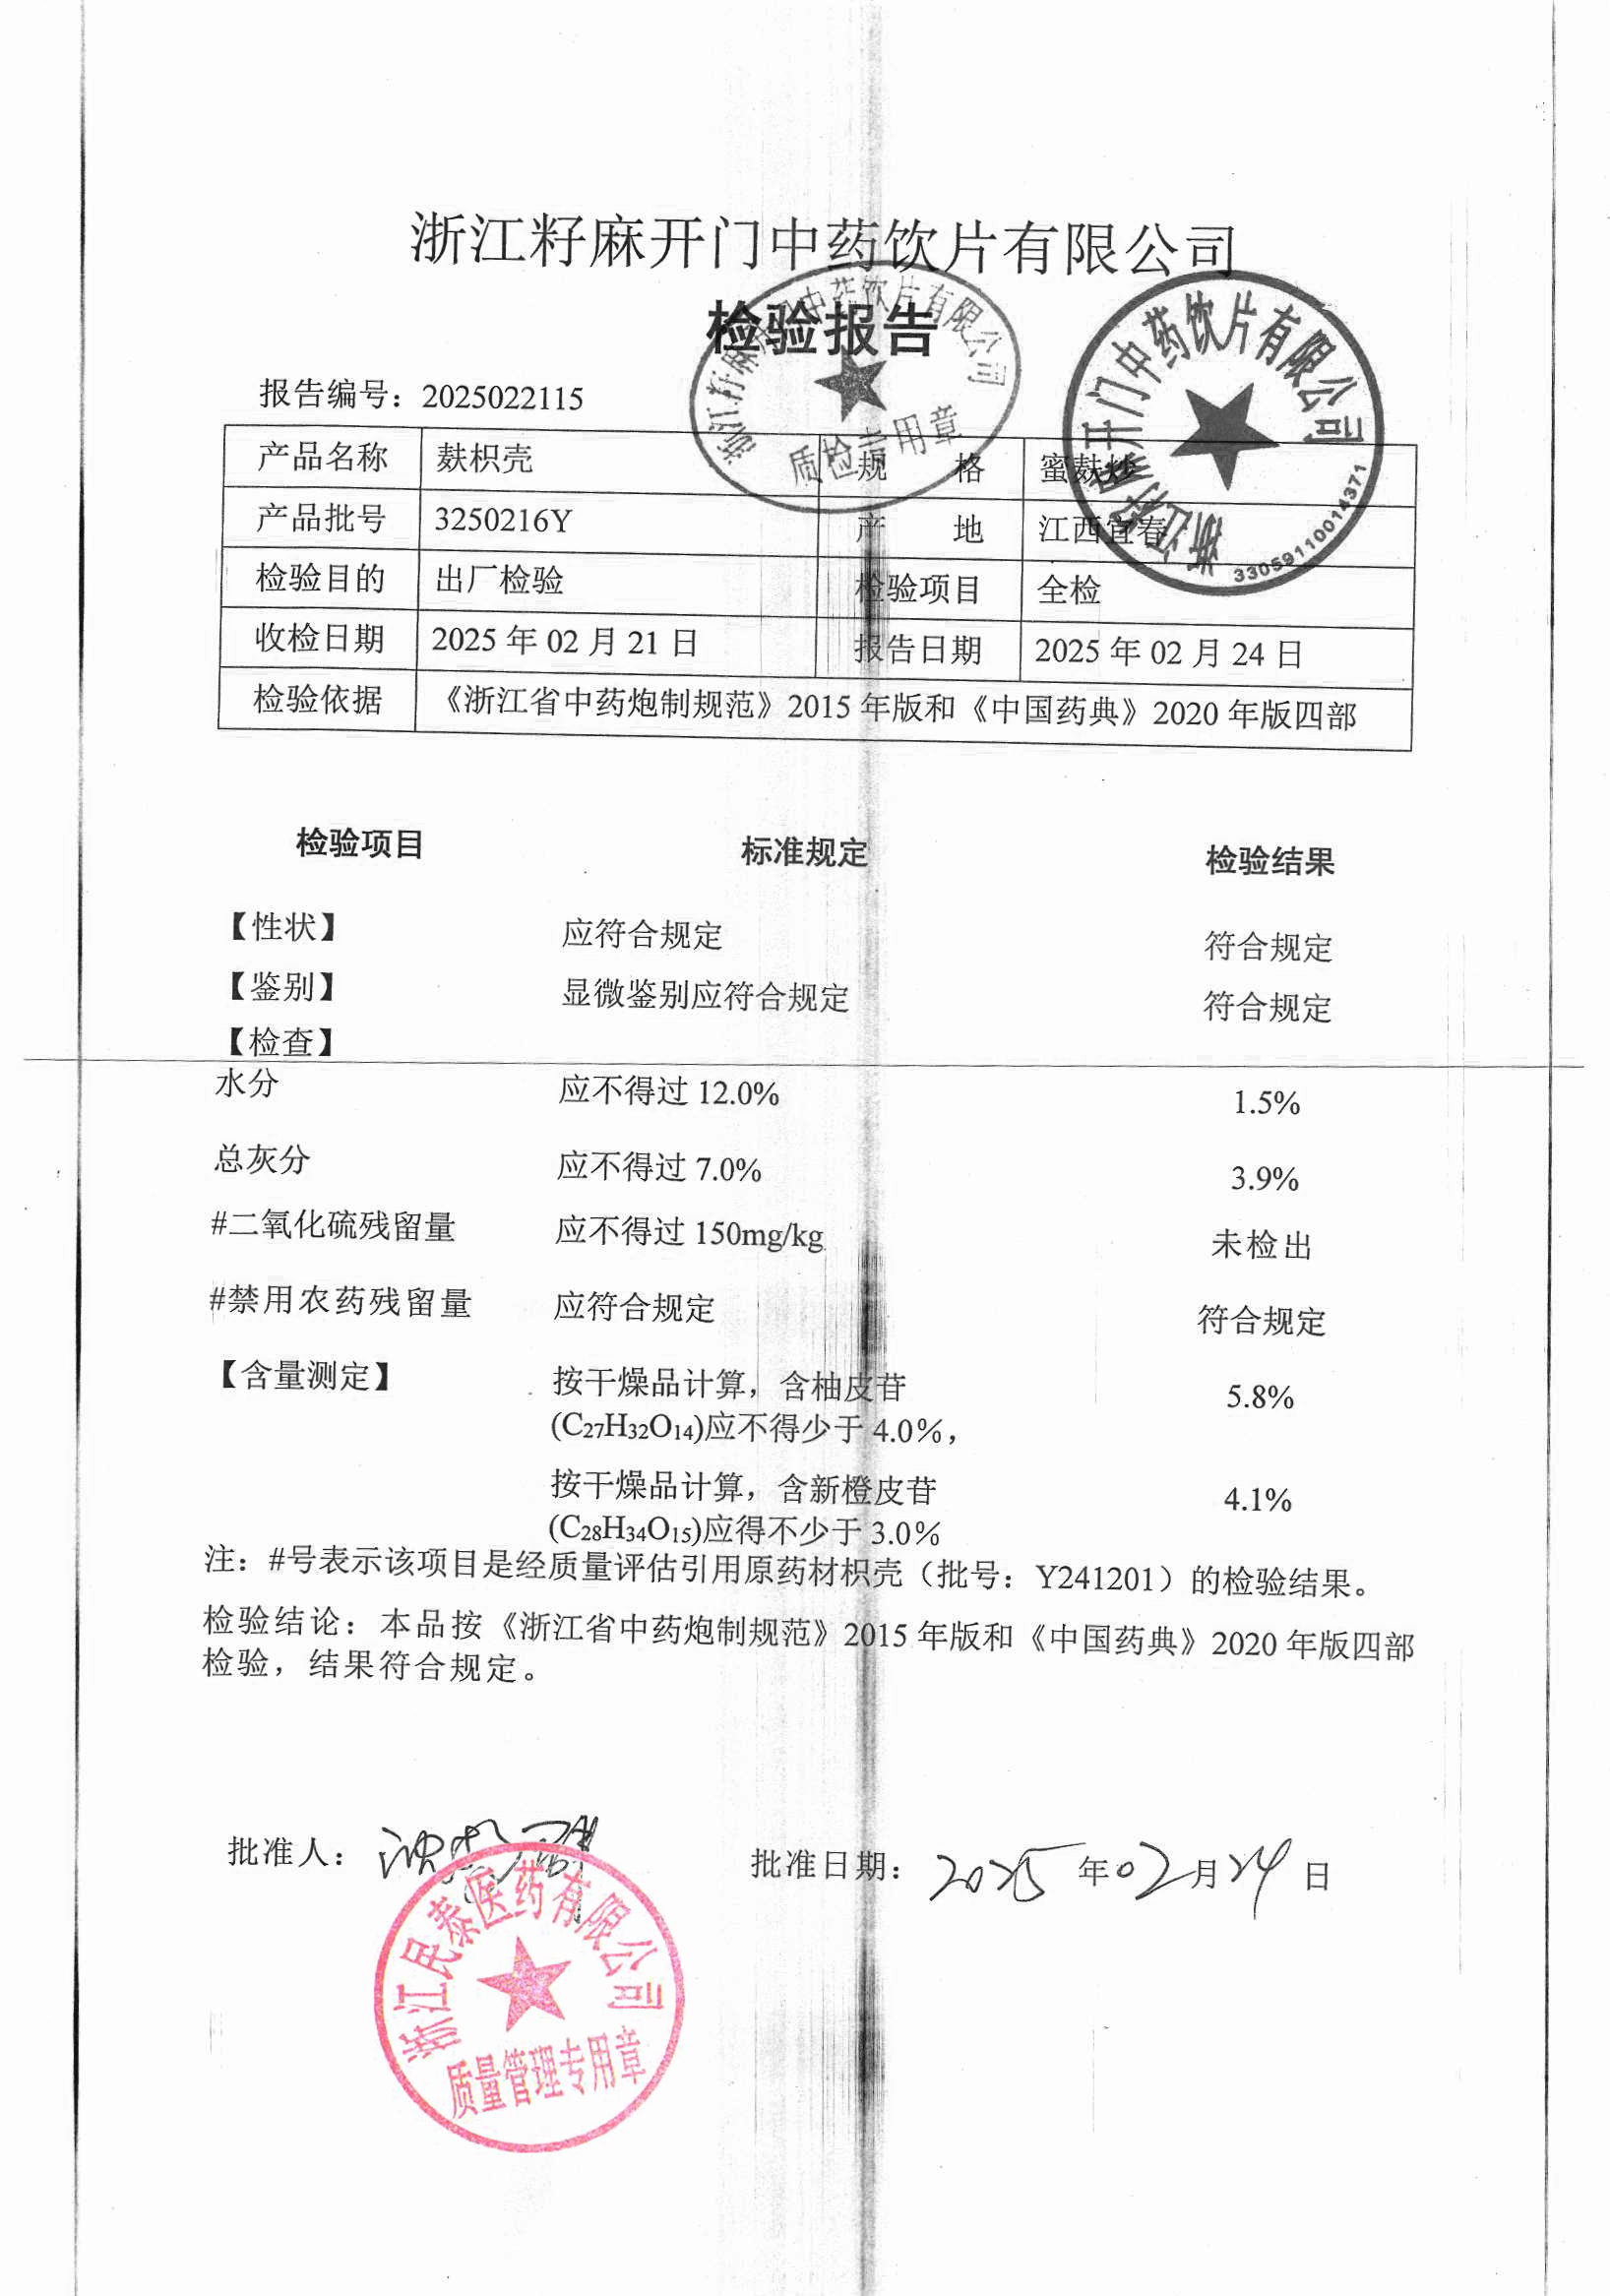 浙江籽麻开门中药饮片有限公司
检验报告
浙江籽麻开门中药饮片有限公司
质检专用章
浙江籽麻开门中药饮片有限公司
33059110014371
报告编号：2025022115
产品名称 麸枳壳 规 格 蜜麸炒
产品批号 3250216Y 产 地 江西宜春
检验目的 出厂检验 检验项目 全检
收检日期 2025 年 02 月 21 日 报告日期 2025 年 02 月 24 日
检验依据 《浙江省中药炮制规范》2015 年版和《中国药典》2020 年版四部
检验项目 标准规定 检验结果
【性状】 应符合规定 符合规定
【鉴别】 显微鉴别应符合规定 符合规定
【检查】
水分 应不得过 12.0% 1.5%
总灰分 应不得过 7.0% 3.9%
#二氧化硫残留量 应不得过 150mg/kg 未检出
#禁用农药残留量 应符合规定 符合规定
【含量测定】 按干燥品计算，含柚皮苷 5.8%
(C27H32O14)应不得少于 4.0%，
按干燥品计算，含新橙皮苷 4.1%
(C28H34O15)应得不少于 3.0%
注：#号表示该项目是经质量评估引用原药材枳壳（批号：Y241201）的检验结果。
检验结论：本品按《浙江省中药炮制规范》2015 年版和《中国药典》2020 年版四部
检验，结果符合规定。
批准人： 批准日期：2025 年 02 月 24 日
浙江民泰医药有限公司
质量管理专用章